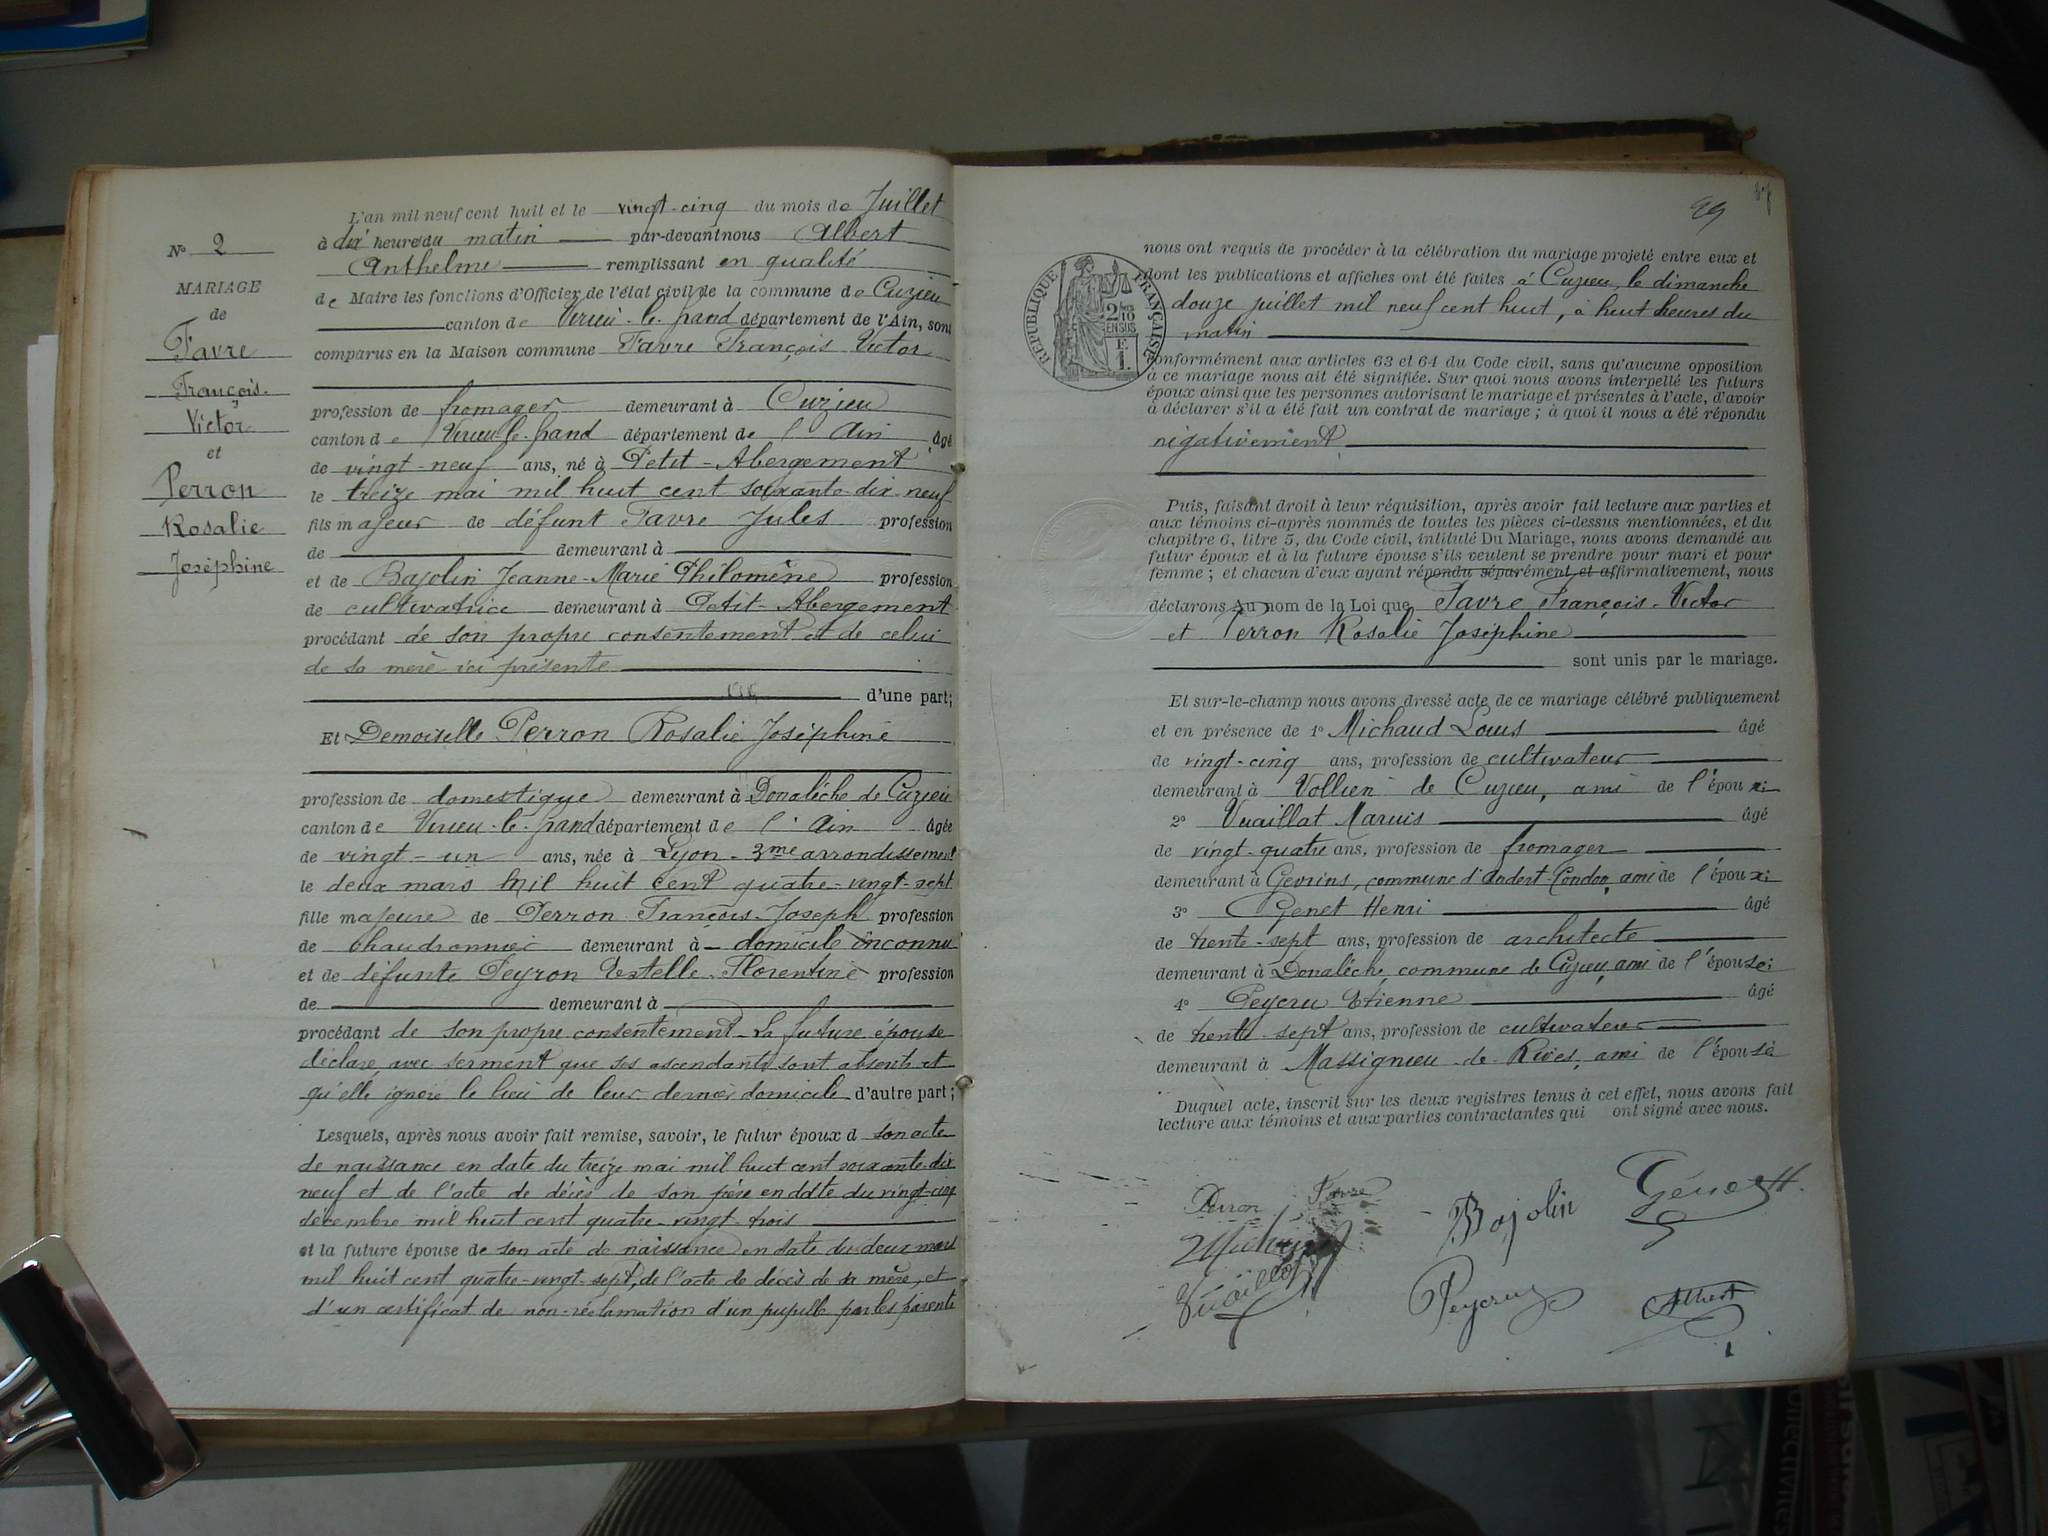 N° 2
MARIAGE
de
Favre
François-
Victor
et
Perron
Rosalie
Joséphine
L'an mil neuf cent huit et le vingt-cinq du mois de Juillet
à dix heures du matin par-devant nous Albert
Anthelme remplissant en qualité
de Maire les fonctions d'Officier de l'état civil de la commune de Cuzieu
canton de Virieu-le-grand département de l'Ain, sont
comparus en la Maison commune Favre François Victor
profession de fromager demeurant à Cuzieu
canton de Virieu-le-grand département de l'Ain âgé
de vingt-neuf ans, né à Petit-Abergement
le treize mai mil huit cent soixante-dix-neuf
fils majeur de défunt Favre Jules profession
de demeurant à
et de Bajolin Jeanne-Marie Philomène profession
de cultivatrice demeurant à Petit-Abergement
procédant de son propre consentement et de celui
de sa mère ici présente
d'une part;
Et Demoiselle Perron Rosalie Joséphine
profession de domestique demeurant à Donalèche de Cuzieu
canton de Virieu-le-grand département de l'Ain âgée
de vingt-un ans, née à Lyon-3me arrondissement
le deux mars mil huit cent quatre-vingt-sept
fille majeure de Perron François-Joseph profession
de chaudronnier demeurant à domicile inconnu
et de défunte Peyron Estelle-Florentine profession
de demeurant à
procédant de son propre consentement. La future épouse
déclare avec serment que ses ascendants sont absents et
qu'elle ignore le lieu de leur dernier domicile d'autre part;
Lesquels, après nous avoir fait remise, savoir, le futur époux d son acte
de naissance en date du treize mai mil huit cent soixante-dix
neuf et de l'acte de décès de son père en ddte du vingt-cinq
décembre mil huit cent quatre-vingt-trois
et la future épouse de son acte de naissance en date du deux mars
mil huit cent quatre-vingt-sept, de l'acte de décès de sa mère, et
d'un certificat de non-réclamation d'un pupille par les parents
29
RÉPUBLIQUE FRANÇAISE
2/10
EN SUS
F.
1.
nous ont requis de procéder à la célébration du mariage projeté entre eux et
dont les publications et affiches ont été faites à Cuzieu, le dimanche
douze juillet mil neuf cent huit, à huit heures du
matin
conformément aux articles 63 et 64 du Code civil, sans qu'aucune opposition
à ce mariage nous ait été signifiée. Sur quoi nous avons interpellé les futurs
époux ainsi que les personnes autorisant le mariage et présentes à l'acte, d'avoir
à déclarer s'il a été fait un contrat de mariage; à quoi il nous a été répondu
négativement
Puis, faisant droit à leur réquisition, après avoir fait lecture aux parties et
aux témoins ci-après nommés de toutes les pièces ci-dessus mentionnées, et du
chapitre 6, titre 5, du Code civil, intitulé Du Mariage, nous avons demandé au
futur époux et à la future épouse s'ils veulent se prendre pour mari et pour
femme; et chacun d'eux ayant répondu séparément et affirmativement, nous
déclarons Au nom de la Loi que Favre François-Victor
et Perron Rosalie Joséphine
sont unis par le mariage.
Et sur-le-champ nous avons dressé acte de ce mariage célébré publiquement
et en présence de 1° Michaud Louis âgé
de vingt-cinq ans, profession de cultivateur
demeurant à Vollien de Cuzieu, ami de l'époux;
2° Vuaillat Marius âgé
de vingt-quatre ans, profession de fromager
demeurant à Gevrins, commune d'Andert-Condon, ami de l'époux;
3° Genet Henri âgé
de trente-sept ans, profession de architecte
demeurant à Donalèche, commune de Cuzieu, ami de l'épouse;
4° Peycru Etienne âgé
de trente-sept ans, profession de cultivateur
demeurant à Massignieu-de-Rives, ami de l'épouse
Duquel acte, inscrit sur les deux registres tenus à cet effet, nous avons fait
lecture aux témoins et aux parties contractantes qui ont signé avec nous.
Perron Favre Bajolin Genet H.
Michaud
Vuaillat Peycru Albert